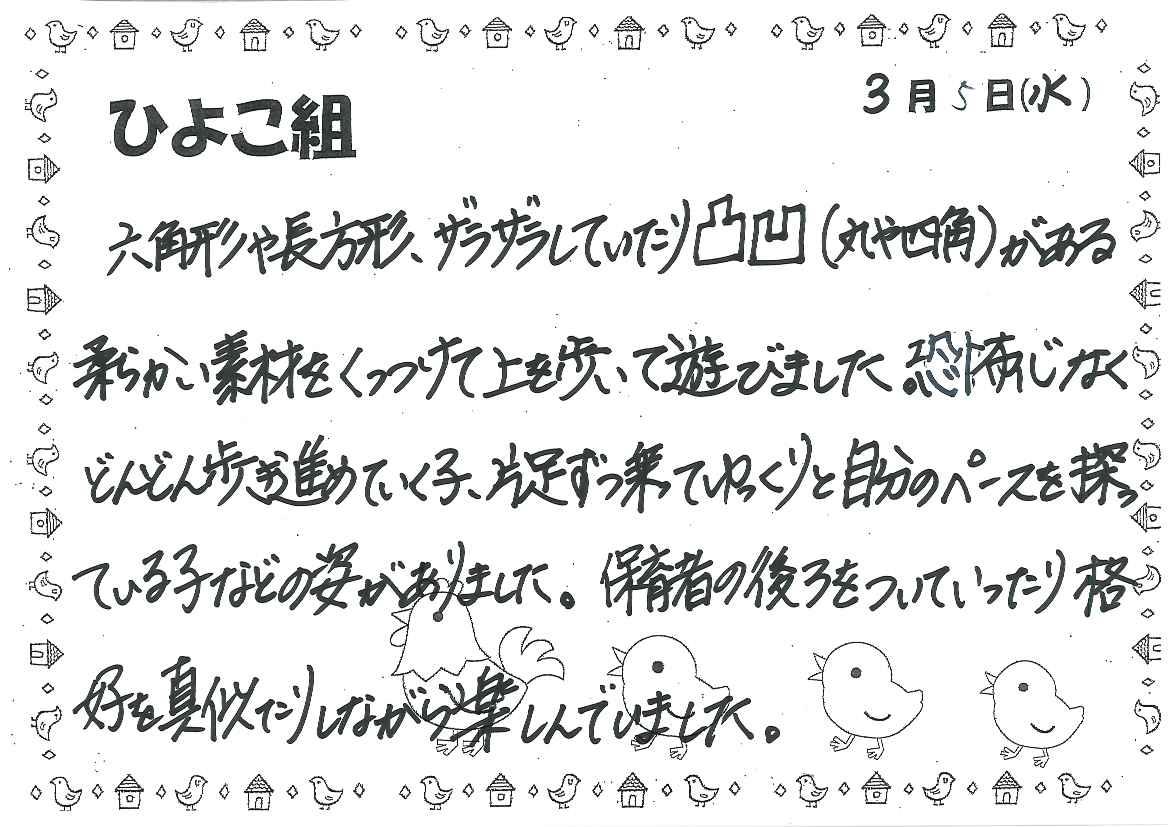 ひよこ組
3月5日(水)
六角形や長方形、ザラザラしていたり凸凹(丸や四角)がある
柔らかい素材をくっつけて上を歩いて遊びました。恐怖じなく
どんどん歩き進めていく子、片足ずつ乗ってゆっくりと自分のペースを探っ
ている子などの姿がありました。保育者の後ろをついていったり格
好を真似たりしながら楽しんでいました。